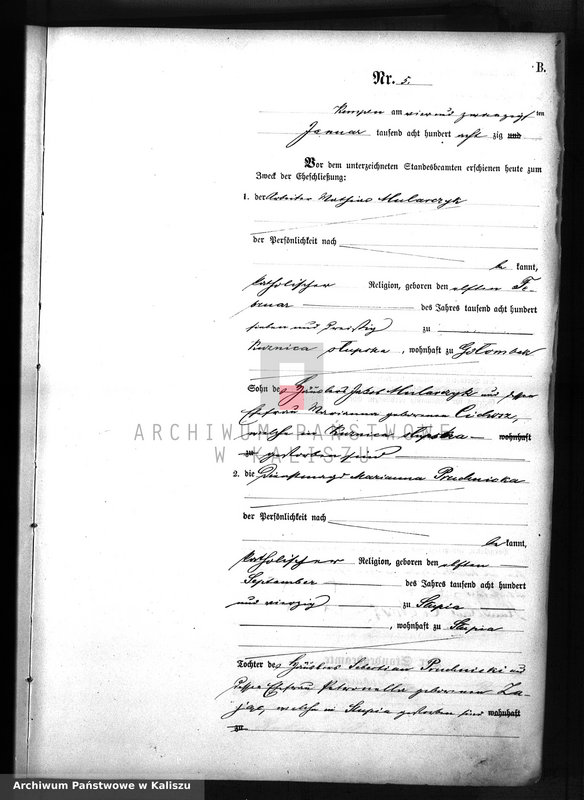 B.
Nr. 5.
Kempen am vier und zwanzigsten
Januar tausend acht hundert acht zig und
Vor dem unterzeichneten Standesbeamten erschienen heute zum
Zweck der Eheschließung:
1. der Arbeiter Mathias Mularczyk
der Persönlichkeit nach
be kannt,
katholischer Religion, geboren den elften Fe-
bruar des Jahres tausend acht hundert
sieben und dreißig zu
Kuznica słupska, wohnhaft zu
Sohn des Häuslers Jakob Mularczyk und dessen
Ehefrau Marianna geborenen
welche in Kuznica słupska wohnhaft
zu gestorben sind
ARCHIWUM PAŃSTWOWE
W KALISZU
2. die Dienstmagd Marianna Prudnicka
der Persönlichkeit nach
be kannt,
katholischer Religion, geboren den elften
September des Jahres tausend acht hundert
und vierzig zu Slupia
, wohnhaft zu Slupia
Tochter des Häuslers Sebastian Prudnicki und
dessen Ehefrau Petronella geborenen Za-
jac, welche in Slupia gestorben sind wohnhaft
zu
Archiwum Państwowe w Kaliszu